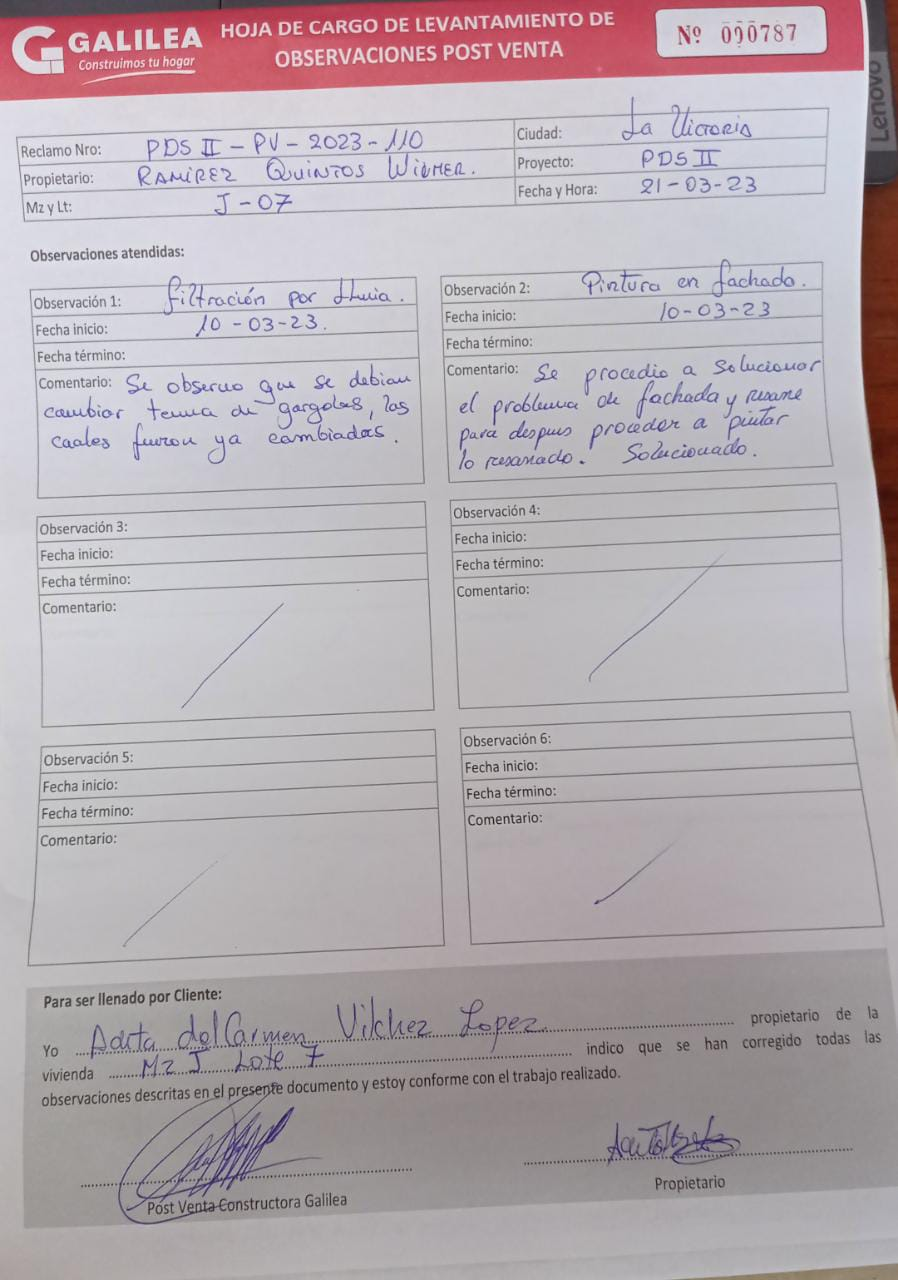 GALILEA
Construimos tu hogar
HOJA DE CARGO DE LEVANTAMIENTO DE
OBSERVACIONES POST VENTA
Nº 000787
Lenovo
Reclamo Nro: PDS II - PV - 2023 - 110
Ciudad: La Victoria
Propietario: RAMIREZ QUINTOS WILMER.
Proyecto: PDS II
Mz y Lt: J - 07
Fecha y Hora: 21-03-23
Observaciones atendidas:
Observación 1: filtración por lluvia.
Fecha inicio: 10-03-23.
Fecha término:
Comentario: Se observo que se debian
cambiar tema de gargolas, las
cuales fueron ya cambiadas.
Observación 2: Pintura en fachada.
Fecha inicio: 10-03-23
Fecha término:
Comentario: Se procedio a solucionar
el problema de fachada y resane
para despues proceder a pintar
lo resanado. Solucionado.
Observación 3:
Fecha inicio:
Fecha término:
Comentario:
Observación 4:
Fecha inicio:
Fecha término:
Comentario:
Observación 5:
Fecha inicio:
Fecha término:
Comentario:
Observación 6:
Fecha inicio:
Fecha término:
Comentario:
Para ser llenado por Cliente:
Yo del Carmen Vilchez Lopez propietario de la
vivienda Mz J Lote 7 indico que se han corregido todas las
observaciones descritas en el presente documento y estoy conforme con el trabajo realizado.
Post Venta Constructora Galilea
Propietario